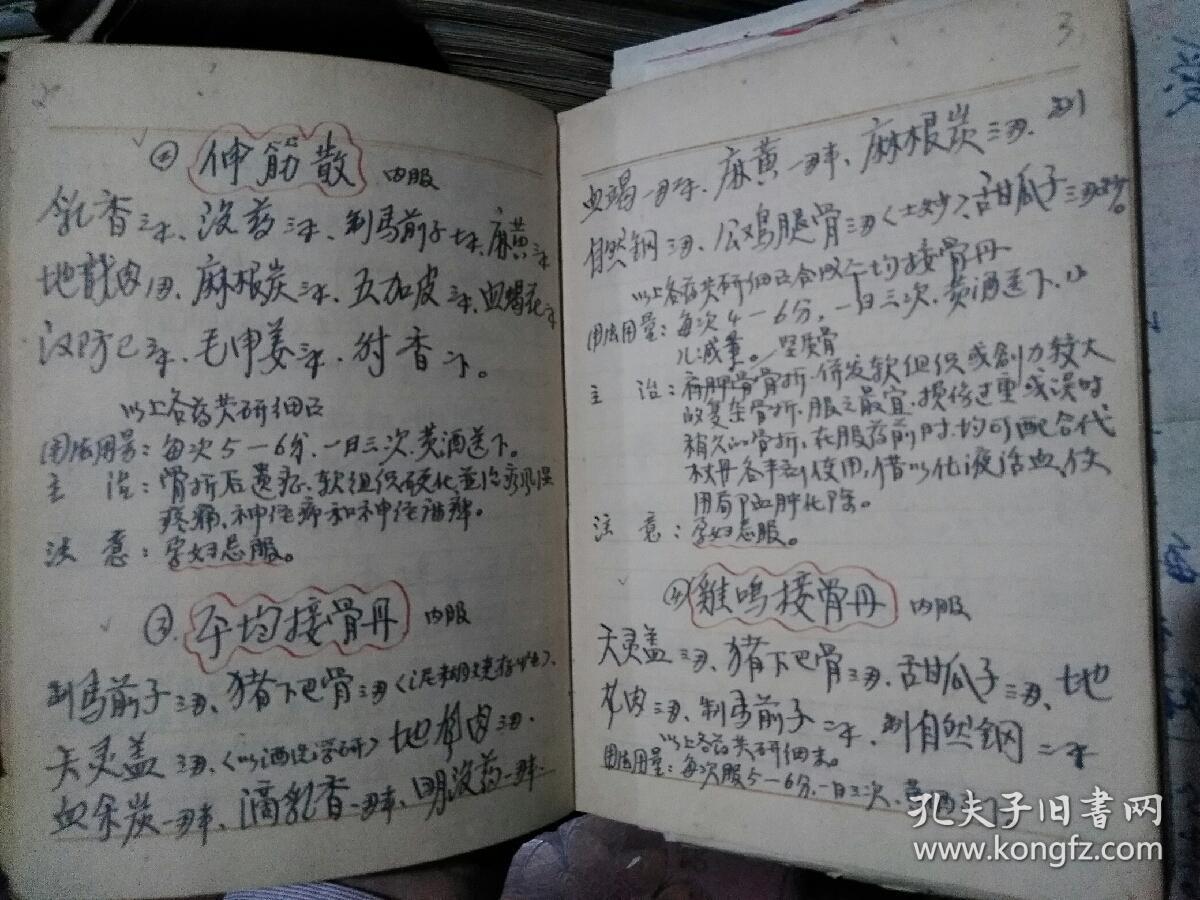 2
② 伸筋散 内服
乳香三钱、没药三钱、制马前子七钱、麻黄三钱
地鳖肉一两、麻根炭三钱、五加皮三钱、血竭花三钱
汉防己三钱、毛申姜三钱、射香一下。
以上各药共研细面
用法用量：每次5—6分，一日三次，黄酒送下。
主 治：骨折后遗症、软组织硬化并治疯湿
疼痛、神经痛和神经麻痹。
注 意：孕妇忌服。
③ 平均接骨丹 内服
制马前子三两、猪下巴骨三两
天灵盖三两、地 肉三两、
血余炭一两半、滴乳香一两半、明没药一两半
3
血竭一两半、麻黄一两半、麻根炭三两、制
自然铜三两、公鸡腿骨三两〈土炒〉、甜瓜子三两炒。
以上各药共研细面合成平均接骨丹
用法用量：每次4—6分，一日三次，黄酒送下，小
儿减量。坚质骨
主 治：骨折，併发软组织或創力较大
的复杂骨折，服之最宜，损伤过重或误时
稍久的骨折，在服药前时，均可配合代
杖丹各半剂使用，借以化淤活血，使
用局下血肿化除。
注 意：孕妇忌服。
④ 雞鸣接骨丹 内服
天灵盖三两、猪下巴骨三两、甜瓜子三两、地
肉三两、制马前子二钱、制自然铜二钱
以上各药共研细末。
用法用量：每次服5—6分，一日三次，黄酒
孔夫子旧书网
www.kongfz.com